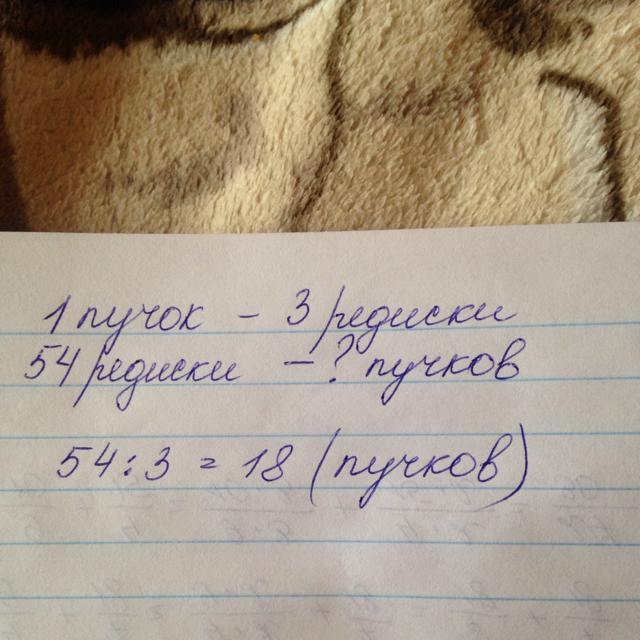 1 пучок - 3 редиски
54 редиски - ? пучков
54 : 3 = 18 (пучков)